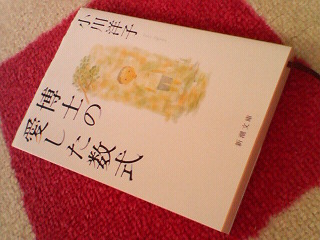 小川洋子
博士の
愛した数式
新潮文庫